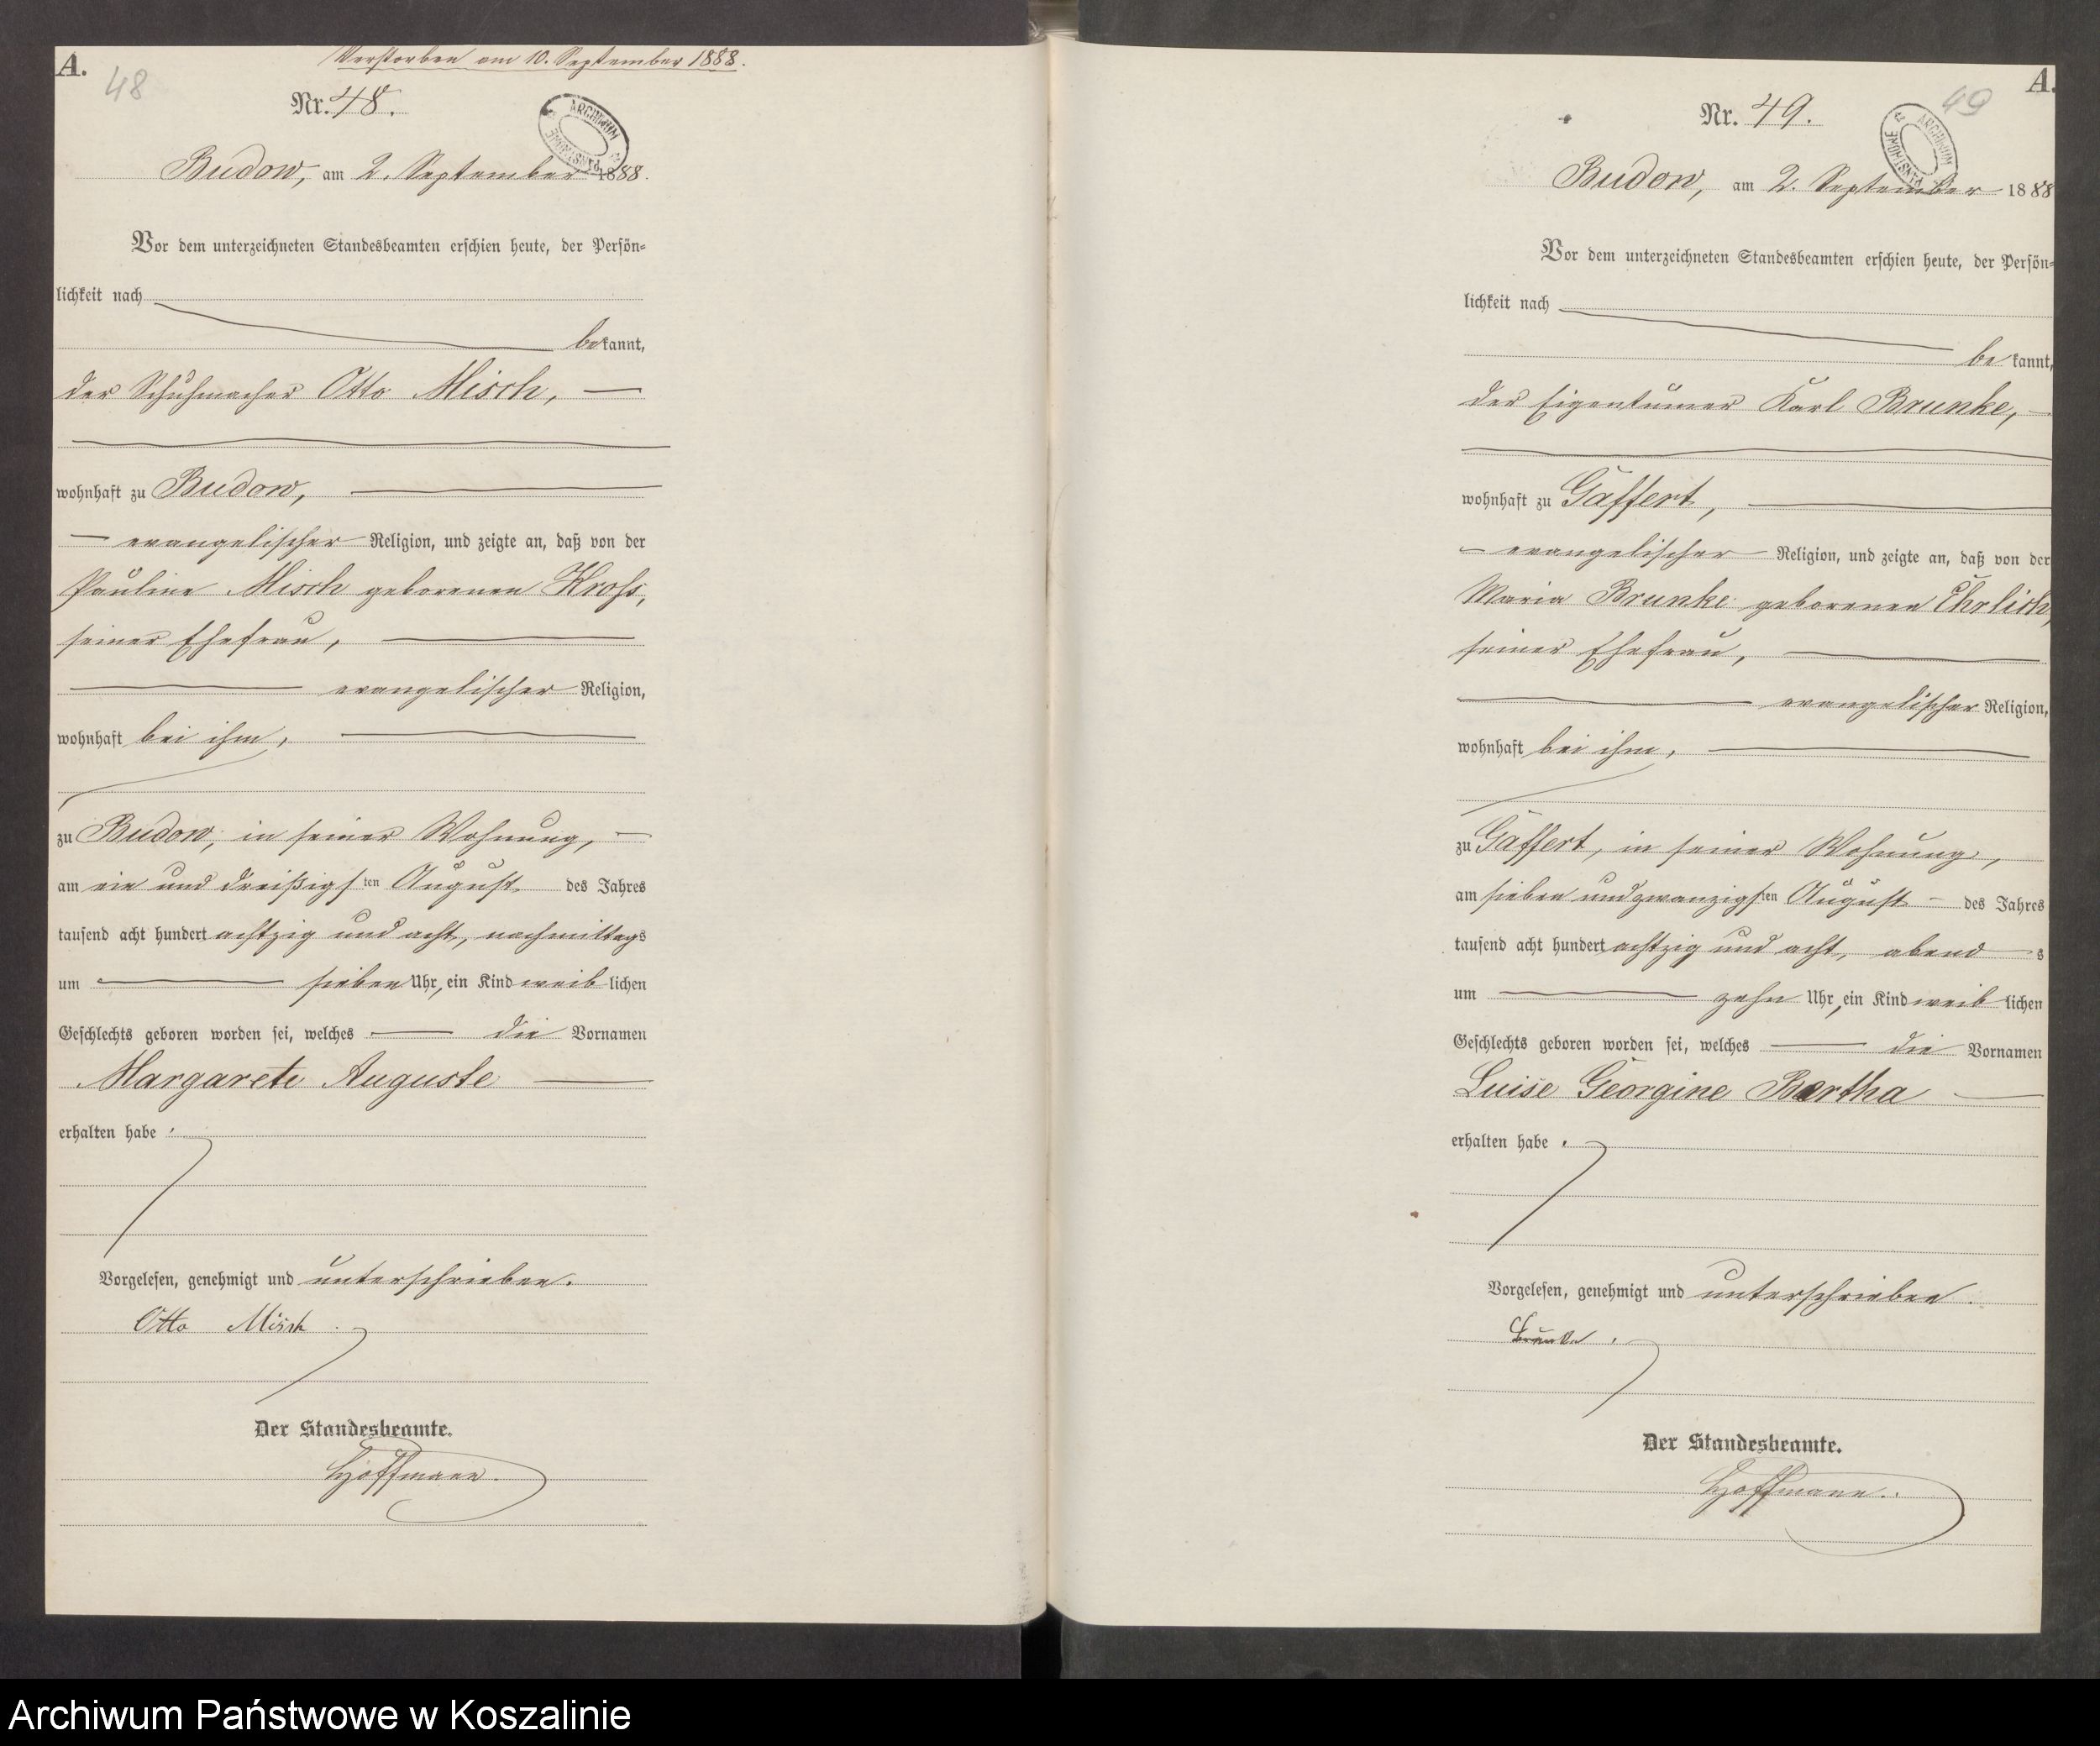 A.
48
Verstorben am 10. September 1888.
Nr. 48.
ARCHIWUM PAŃSTWOWE
Budow, am 2. September 1888.
Vor dem unterzeichneten Standesbeamten erschien heute, der Persön-
lichkeit nach
bekannt,
der Schuhmacher Otto Misch,
wohnhaft zu Budow,
evangelischer Religion, und zeigte an, daß von der
Pauline Misch geborenen Kroß,
seiner Ehefrau,
evangelischer Religion,
wohnhaft bei ihm,
zu Budow, in seiner Wohnung,
am ein und dreißigsten August des Jahres
tausend acht hundert achtzig und acht, nachmittags
um sieben Uhr, ein Kind weiblichen
Geschlechts geboren worden sei, welches die Vornamen
Margarete Auguste
erhalten habe.
Vorgelesen, genehmigt und unterschrieben.
Otto Misch.
Der Standesbeamte.
Hoffmann.
A.
49
Nr. 49.
ARCHIWUM PAŃSTWOWE
Budow, am 2. September 1888
Vor dem unterzeichneten Standesbeamten erschien heute, der Persön-
lichkeit nach
bekannt,
der Eigentümer Karl Brunke,
wohnhaft zu Gaffert,
evangelischer Religion, und zeigte an, daß von der
Maria Brunke geborenen Ehrlich,
seiner Ehefrau,
evangelischer Religion,
wohnhaft bei ihm,
zu Gaffert, in seiner Wohnung,
am sieben und zwanzigsten August des Jahres
tausend acht hundert achtzig und acht, abends
um zehn Uhr, ein Kind weiblichen
Geschlechts geboren worden sei, welches die Vornamen
Luise Georgine Bertha
erhalten habe.
Vorgelesen, genehmigt und unterschrieben.
Brunke.
Der Standesbeamte.
Hoffmann.
Archiwum Państwowe w Koszalinie